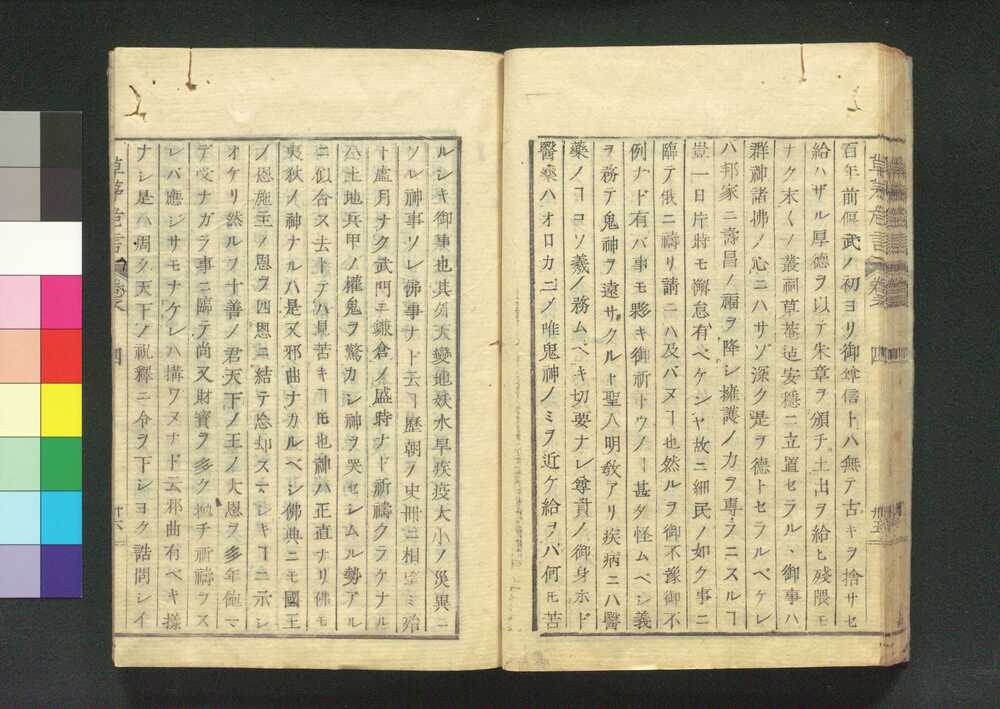 百年前偃武ノ初ヨリ御尊信トハ無テ古キヲ捨サセ
給ハザル厚德ヲ以テ朱章ヲ頒チ土出ヲ給ヒ殘隈モ
ナク末〱ノ叢祠草菴迠安穩ニ立置セラル、御事ハ
群神諸佛ノ心ニハサゾ深ク是ヲ德トセラルベケレ
バ邦家ニ壽昌ノ福ヲ降シ擁護ノ力ヲ專ラニスルヿ
豈一日片時モ懈怠有ベケンヤ故ニ細民ノ如ク事ニ
臨テ俄ニ禱リ請ニハ及バヌヿ也然ルヲ御不豫御不
例ナド有バ事モ夥キ御祈トウノヿ甚ダ怪ムベシ義
ヲ務テ鬼神ヲ遠サクルト聖人明敎アリ疾病ニハ醫
藥ノヿコソ義ノ務ムベキ切要ナレ尊貴ノ御身ホド
醫藥ハオロカニノ唯鬼神ノミヲ近ケ給ヲバ何モ苦
草茅危言
卷
四
卅五
ルシキ御事也其外天變地妖水旱疾疫大小ノ災異ニ
ソレ神事ソレ佛事ナド云ヿ歷朝ヲ史冊ニ相望ミ殆
ト虛月ナク武門ニ鎌倉ノ盛時ナド祈禱クラケナル
公土地兵甲ノ權鬼ヲ驚カシ神ヲ哭セシムル勢アル
ニ似合ス去トテハ見苦キヿ𪜈也神ハ正直ナリ佛モ
夷狄ノ神ナルハ是又邪曲ナカルベシ佛典ニモ國王
ノ恩施主ノ恩ヲ四恩ニ結テ忘却スマシキヿニ示シ
オケリ然ルヲ十善ノ君天下ノ王ノ大恩ヲ多年飽マ
デ受ナガラ事ニ臨テ尚又財寶ヲ多ク擲チ祈禱ヲス
レバ應ジサモナケレハ搆ワヌナド云邪曲有ベキ樣
ナシ是ハ周ク天下ノ祝釋ニ令ヲ下シヨク誥問シイ
草茅危言
卷
四
卅六